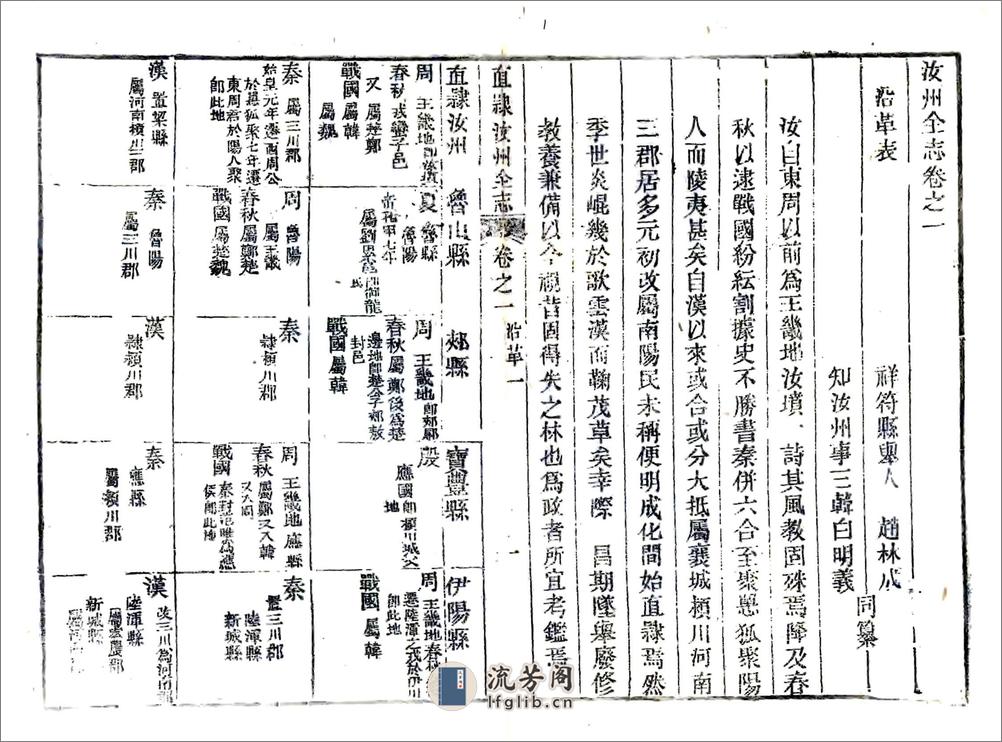 汝州全志卷之一
沿革表
祥符縣舉人　趙林成
知汝州事三韓白明義
同纂
汝自東周以前爲王畿地汝墳、詩其風教固殊焉降及春
秋以逮戰國紛紜割據史不勝書秦併六合至聚憚狐聚陽
人而陵夷甚矣自漢以來或合或分大抵屬襄城潁川河南
三郡居多元初改屬南陽民未稱便明成化間始直隸焉然
季世炎崐幾於歌雲漢而鞠茂草矣幸際　昌期墜舉廢修
教養兼備以今視昔固得失之林也爲政者所宜考鑑焉
直隸汝州全志　卷之一　沿革　一
直隸汝州
魯山縣
郟縣
寶豐縣
伊陽縣
周　王畿地
春秋　戎蠻子邑
又　屬楚鄭
戰國　屬韓
屬魏
夏　魯縣
魯陽
周　王畿地
春秋屬鄭後爲楚
邊地
封邑
戰國屬韓
殷
應國
地
周　王畿地春秋
遷陸渾之戎於伊川
即此地
戰國　屬韓
秦　屬三川郡
始皇元年遷西周公
於憚狐聚七年遷
東周君於陽人聚
即此地
周　魯陽
屬王畿
春秋屬鄭楚
戰國屬楚魏
秦
隸潁川郡
周　王畿地應縣
春秋屬鄭又入韓
戰國
侯即此地
秦
置三川郡
陸渾縣
新城縣
漢　置梁縣
屬河南
秦　魯陽
屬三川郡
漢
隸潁川郡
秦　應縣
屬潁川郡
漢　改三川爲河南郡
陸渾縣
屬弘農郡
新城縣
流芳阁
lfglib.cn